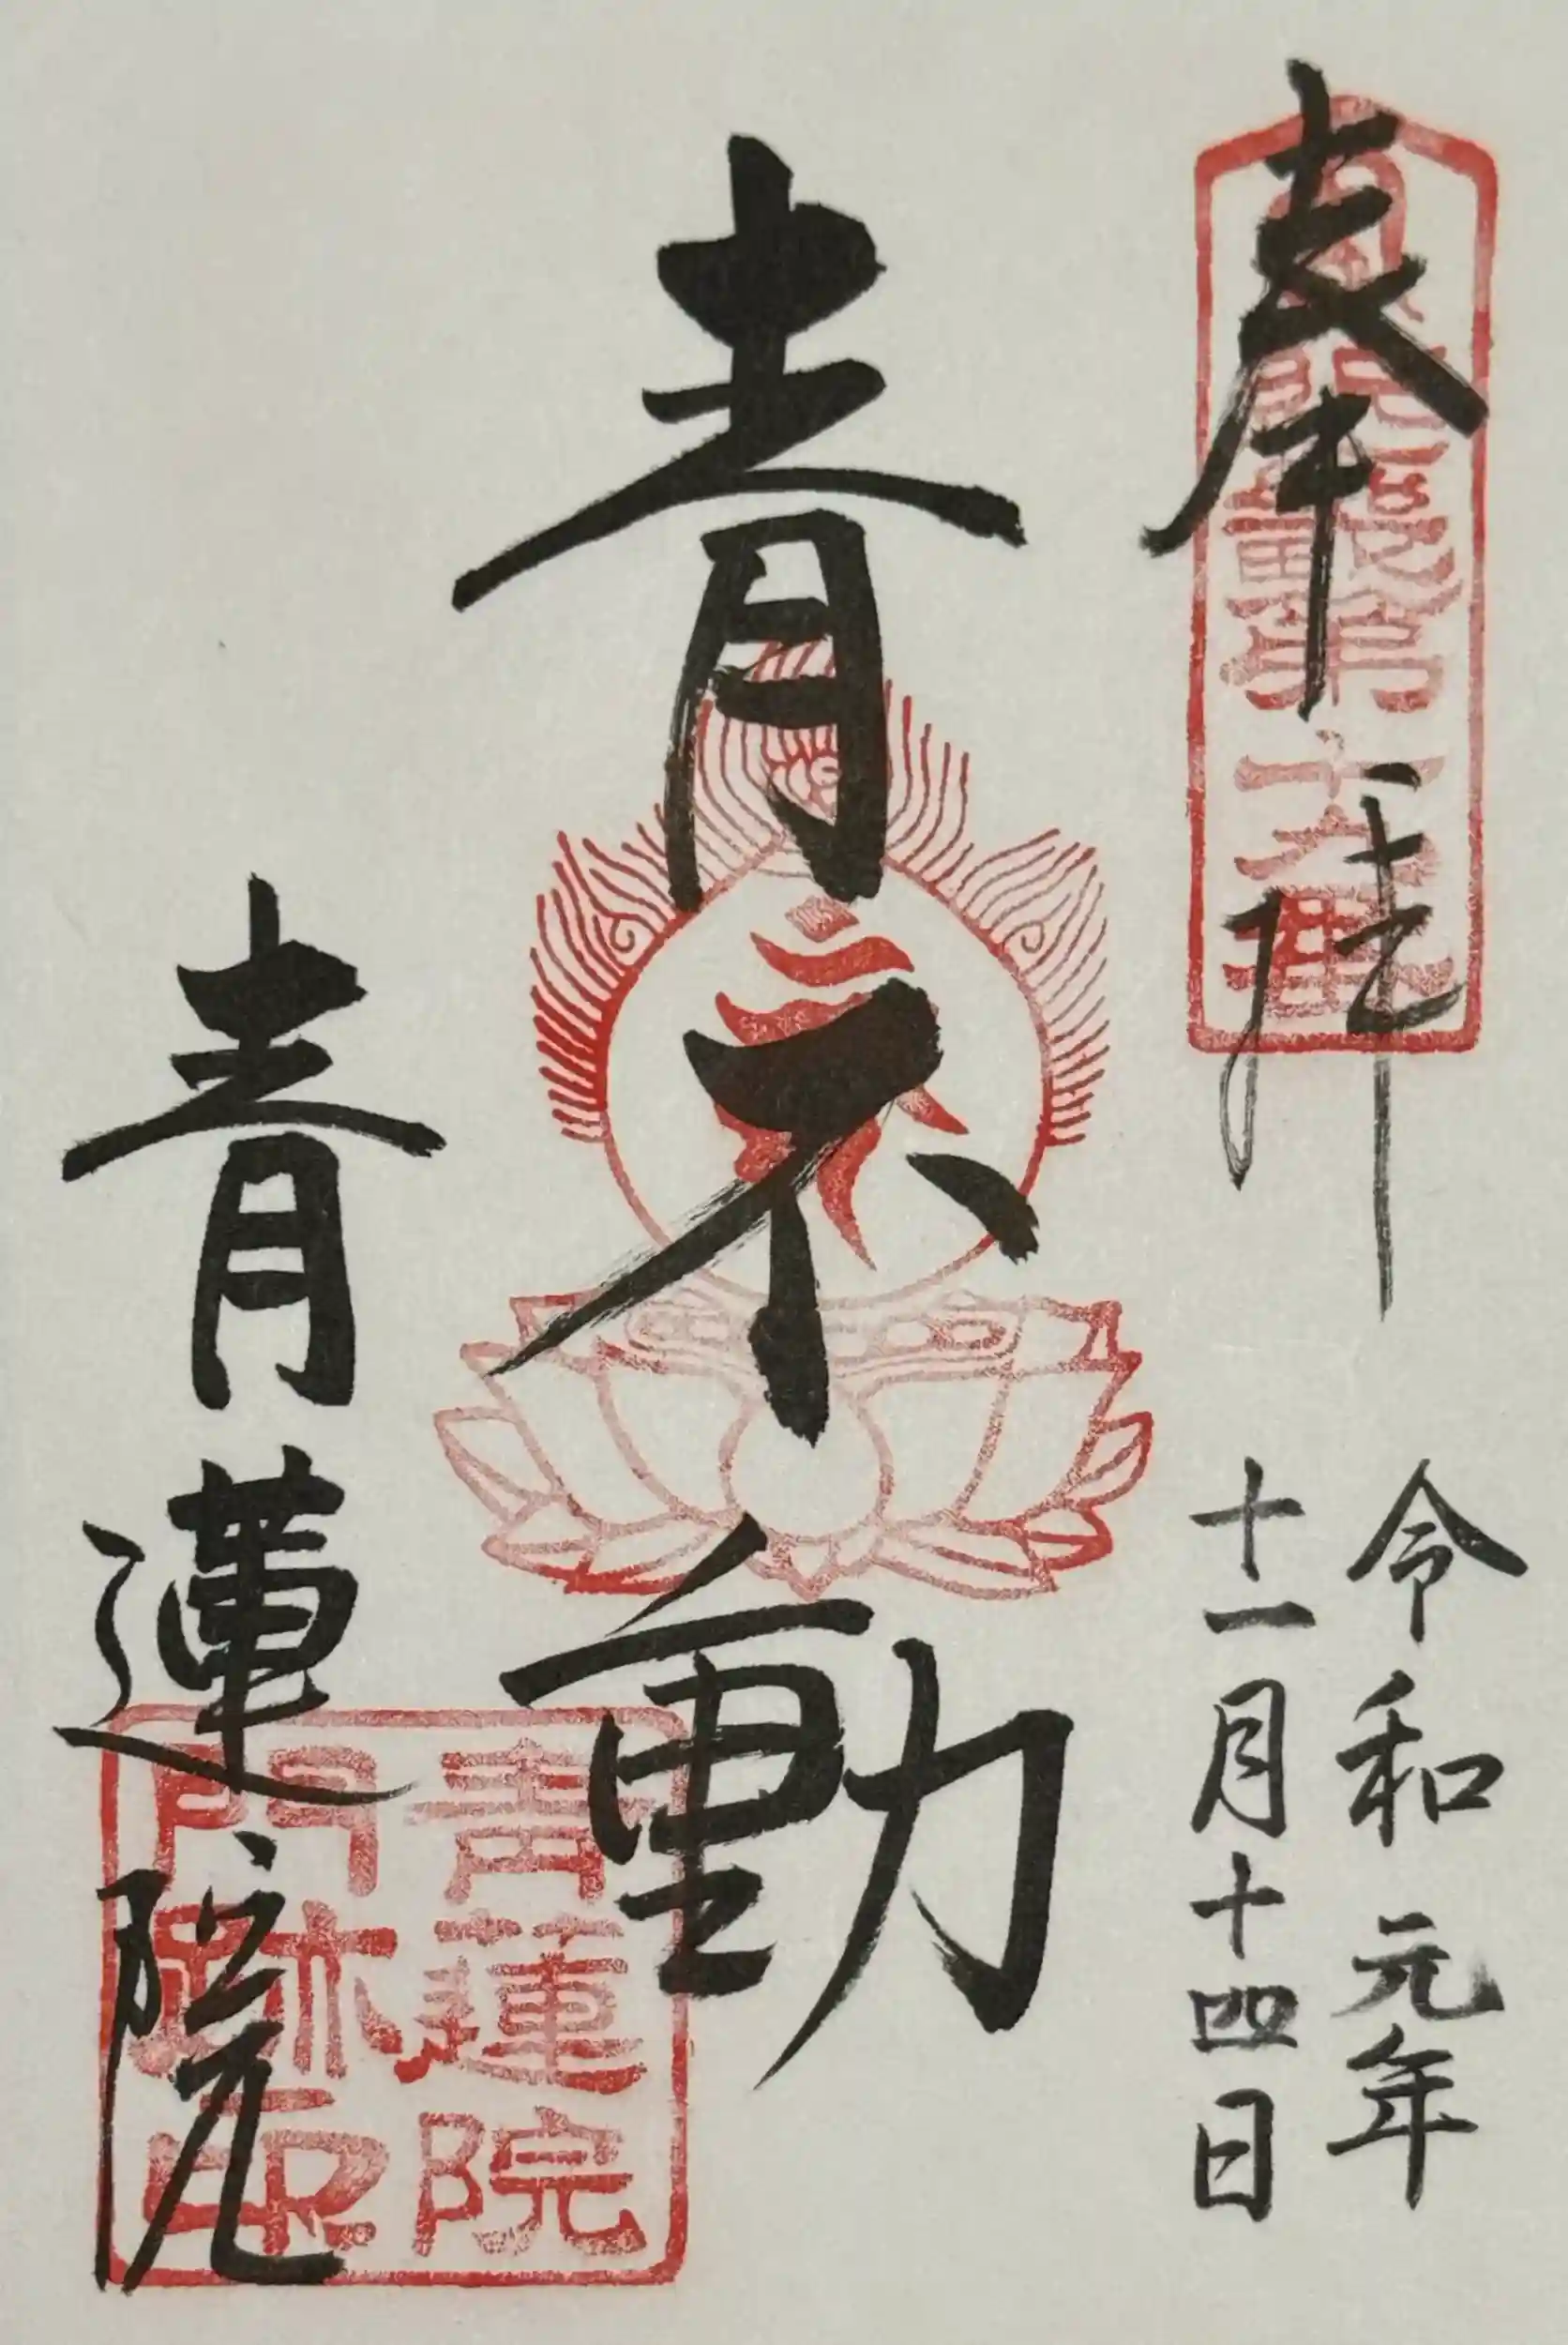 奉拝
令和元年
十一月十四日
青不動
青蓮院
青蓮院
門跡印